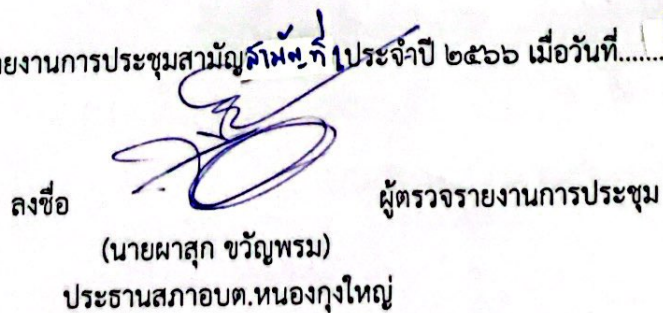 ยงานการประชุมสามัญสามัญที่ ๑ประจำปี ๒๕๖๖ เมื่อวันที่........
ลงชื่อ ผู้ตรวจรายงานการประชุม
(นายผาสุก ขวัญพรม)
ประธานสภาอบต.หนองกุงใหญ่